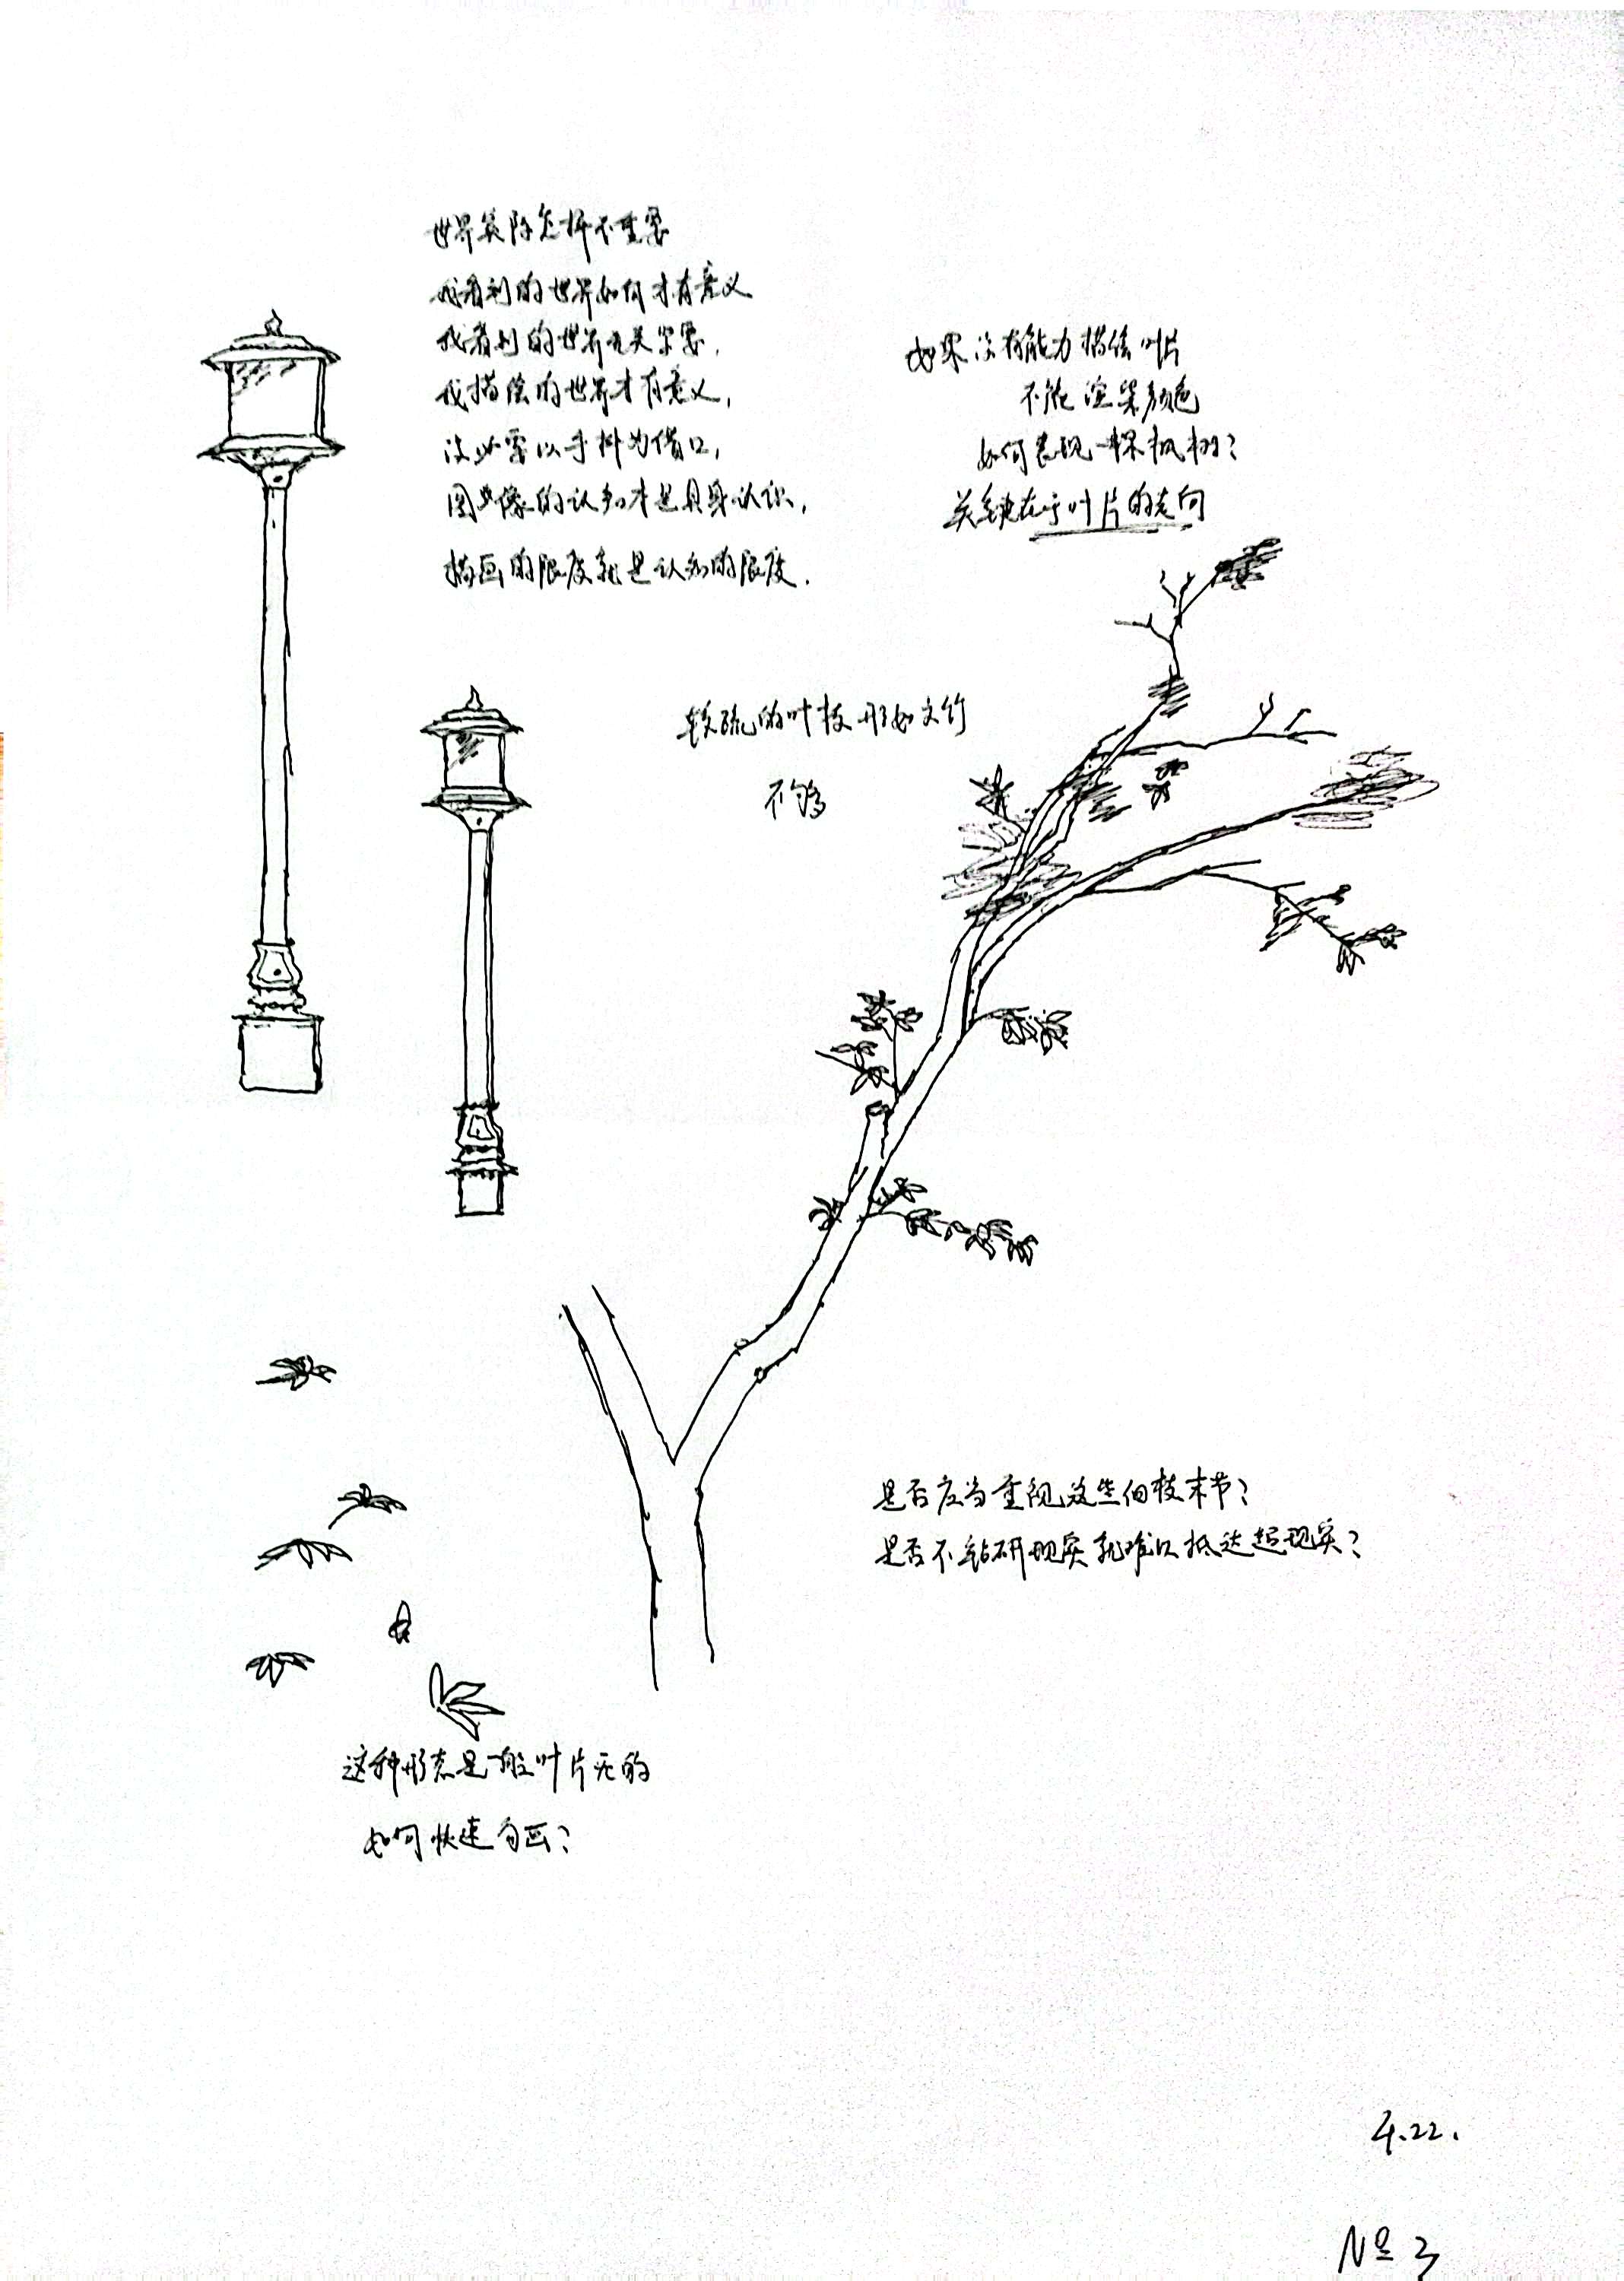 世界实际怎样不重要
我看到的世界如何才有意义
我看到的世界无关紧要,
我描绘的世界才有意义,
没必要以手抖为借口,
图像的认知才是具身认识,
描画的限度就是认知的限度.
如果没有能力描绘叶片
不能渲染颜色
如何表现一棵枫树?
关键在于叶片的走向
较疏的叶枝形如文竹
不够
是否应当重视这些细枝末节?
是否不钻研现实就难以抵达超现实?
这种形态是一般叶片无的
如何快速勾画?
4.22.
№ 3